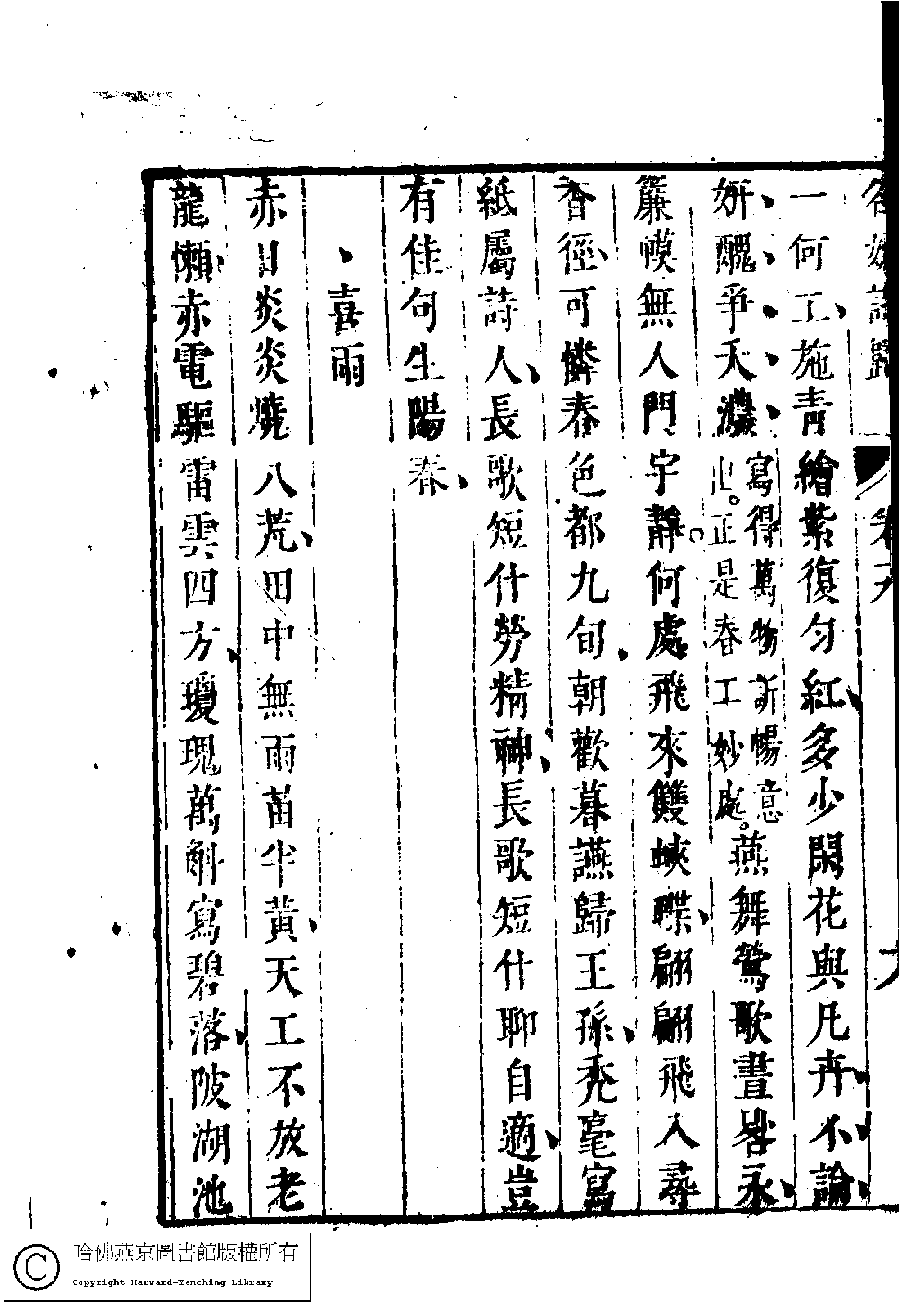 名媛詩歸 卷六
一何工施青繪紫復勻紅多少閑花與凡卉不論
妍醜爭天濃寫得萬物訢暢意
出。正是春工妙處。燕舞鶯歌晝晷永
簾幙無人門宇靜何處飛來雙蛺蝶翩翩飛入尋
香徑可憐春色都九旬朝歡暮讌歸王孫禿毫寫
紙屬詩人長歌短什勞精神長歌短什聊自適豈
有佳句生陽春
喜雨
赤日炎炎燒八荒田中無雨苗半黃天工不放老
龍懶赤電驅雷雲四方瓊瑰萬斛寫碧落陂湖池
哈佛燕京圖書館版權所有
Copyright Harvard-Yenching Library